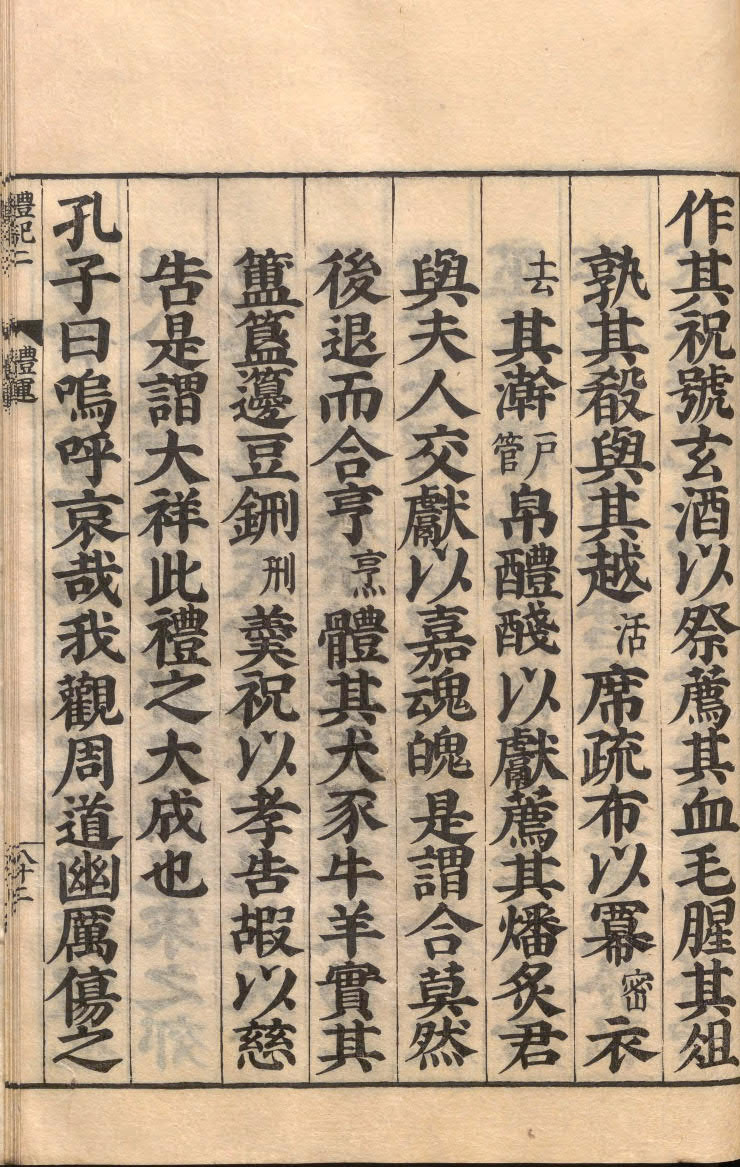 作其祝號玄酒以祭薦其血毛腥其俎
孰其殽與其越活席疏布以冪密衣
去其澣戶管帛醴醆以獻薦其燔炙君
與夫人交獻以嘉魂魄是謂合莫然
後退而合亨烹體其犬豕牛羊實其
簠簋籩豆鉶刑羹祝以孝告嘏以慈
告是謂大祥此禮之大成也
孔子曰嗚呼哀哉我觀周道幽厲傷之
禮記二
禮運
八十二